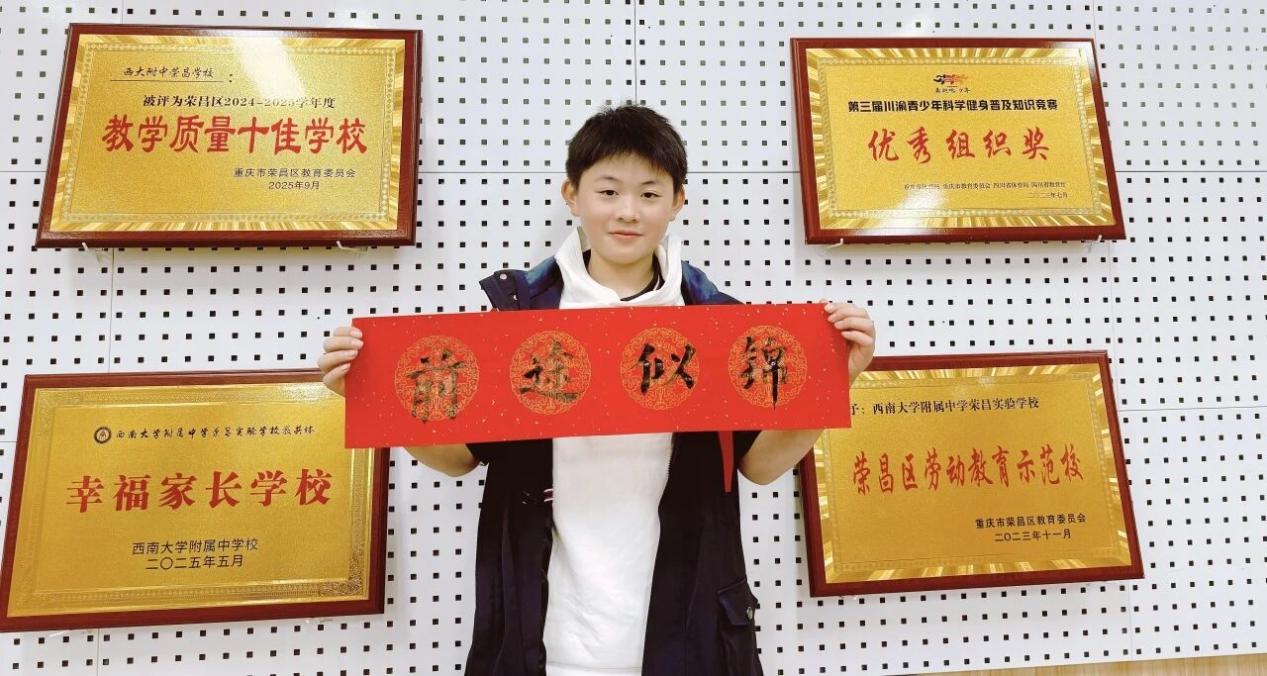 西大附中荣昌学校：
被评为荣昌区2024-2025学年度
教学质量十佳学校
重庆市荣昌区教育委员会
2025年9月
第三届川渝青少年科学健身普及知识竞赛
优秀组织奖
重庆市教育委员会 四川省体育局 四川省教育厅
二〇二三年七月
前途似锦
幸福家长学校
西南大学附属中学校
二〇二五年五月
予：西南大学附属中学荣昌实验学校
荣昌区劳动教育示范校
重庆市荣昌区教育委员会
二〇二三年十一月